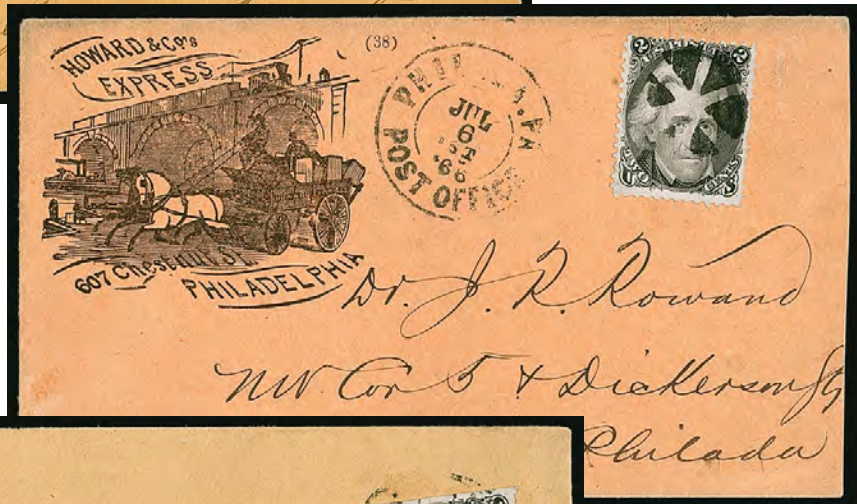 HOWARD & Co's
EXPRESS
607 Chestnut St.
PHILADELPHIA
(38)
PA
JUL
6
'66
POST OFFICE
2 2
TWO CENTS
Dr. J. R. Rowand
NW. Cor 5 & Dickerson Sts
Philada